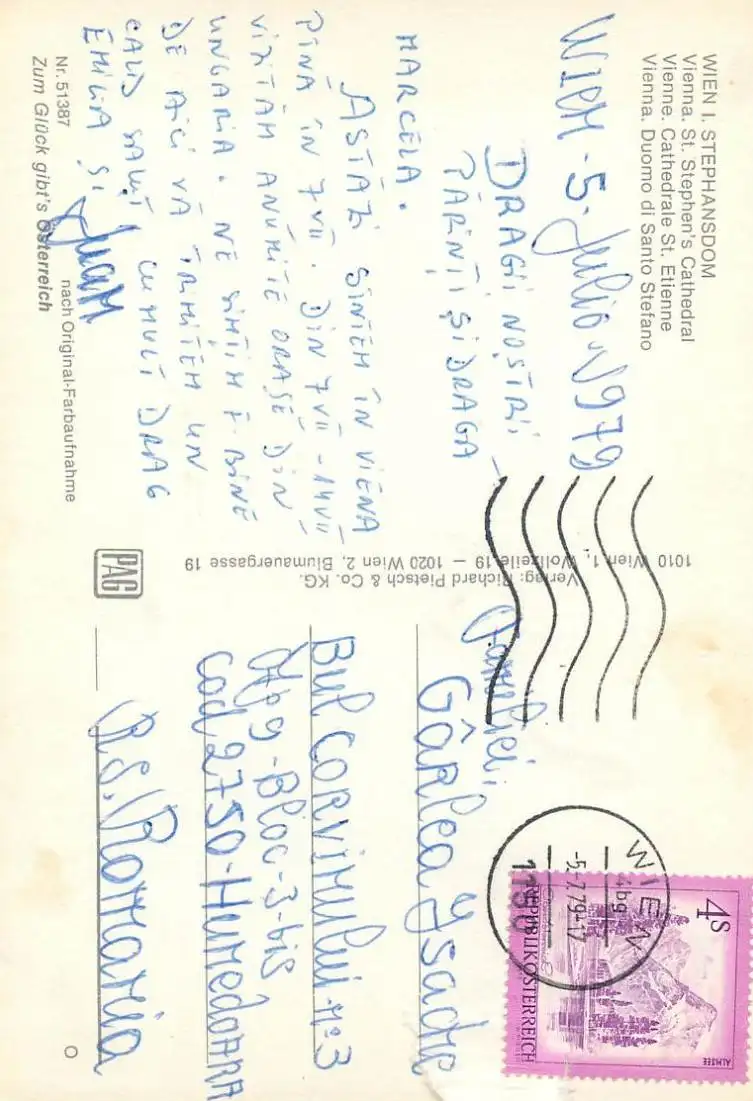 WIEN I. STEPHANSDOM
Vienna. St. Stephen's Cathedral
Vienne. Cathedrale St. Etienne
Vienna. Duomo di Santo Stefano
WIEM - 5. Julio-1979
DRAGII NOȘTRII
PĂRINȚI ȘI DRAGA
MARCELA.
ASTĂZI SÎNTEM ÎN VIENA
PÎNĂ ÎN 7 VII. DIN 7 VII - 14 VII
VIZITĂM ANUMITE ORAȘE DIN
UNGARIA. NE SIMȚIM F. BINE
DE AICI VĂ TRIMITEM UN
CALD SALUT CU MULT DRAG
EMILIA ȘI Juan
Nr. 51387
nach Original-Farbaufnahme
Zum Glück gibt's Österreich
Verlag: Richard Pietsch & Co. KG.
1010 Wien 1, Wollzeile 19 — 1020 Wien 2, Blumauergasse 19
PAG
Familiei,
Gârlea Ysadre
Bul CORVINULUI Nº3
Apg - Bloc - 3 - bis
cod 2750 - HUNEDOARA
R.S. Romania
WIEN
-5.-7.79-17
1150
4S
REPUBLIK ÖSTERREICH
ALMSEE